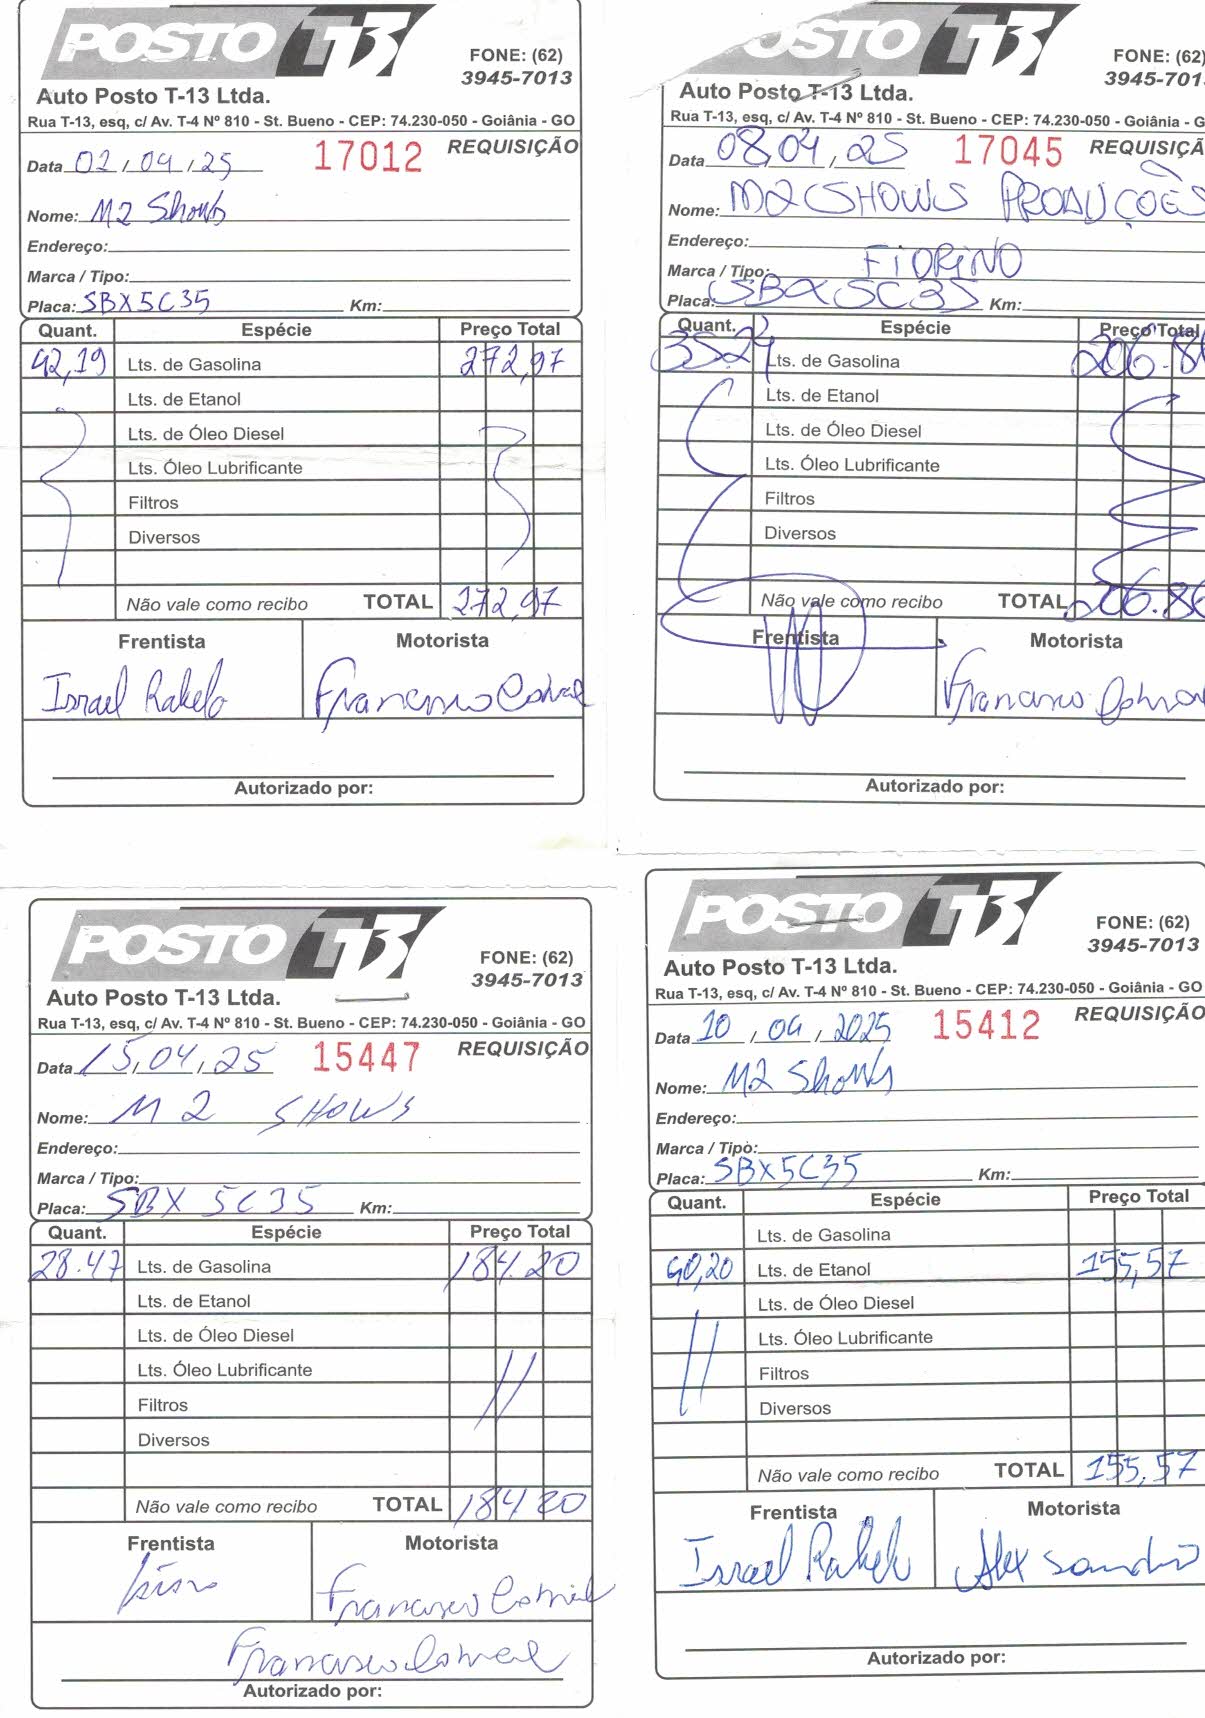 POSTO T-13
FONE: (62)
3945-7013
Auto Posto T-13 Ltda.
Rua T-13, esq, c/ Av. T-4 Nº 810 - St. Bueno - CEP: 74.230-050 - Goiânia - GO
Data 02/04/25 17012 REQUISIÇÃO
Nome: M2 Shows
Endereço:
Marca / Tipo:
Placa: SBX5C35 Km:
Quant. Espécie Preço Total
42,19 Lts. de Gasolina 272,97
Lts. de Etanol
Lts. de Óleo Diesel
Lts. Óleo Lubrificante
Filtros
Diversos
Não vale como recibo TOTAL 272,97
Frentista Motorista
Israel Rakelo Francisco
Autorizado por:
OSTO T-13
FONE: (62)
3945-701
Auto Posto T-13 Ltda.
Rua T-13, esq, c/ Av. T-4 Nº 810 - St. Bueno - CEP: 74.230-050 - Goiânia - G
Data 08,04,25 17045 REQUISIÇÃ
Nome: M2 SHOWS PRODUÇÕES
Endereço:
Marca / Tipo: FIORINO
Placa: SBX5C35 Km:
Quant. Espécie Preço Total
Lts. de Gasolina 206.8
Lts. de Etanol
Lts. de Óleo Diesel
Lts. Óleo Lubrificante
Filtros
Diversos
Não vale como recibo TOTAL 206.8
Frentista Motorista
Francisco
Autorizado por:
POSTO T-13
FONE: (62)
3945-7013
Auto Posto T-13 Ltda.
Rua T-13, esq, c/ Av. T-4 Nº 810 - St. Bueno - CEP: 74.230-050 - Goiânia - GO
Data 15,04,25 15447 REQUISIÇÃO
Nome: M2 SHOWS
Endereço:
Marca / Tipo:
Placa: SBX 5C35 Km:
Quant. Espécie Preço Total
28.47 Lts. de Gasolina 184.20
Lts. de Etanol
Lts. de Óleo Diesel
Lts. Óleo Lubrificante
Filtros
Diversos
Não vale como recibo TOTAL 184.20
Frentista Motorista
Francisco
Francisco
Autorizado por:
POSTO T-13
FONE: (62)
3945-7013
Auto Posto T-13 Ltda.
Rua T-13, esq, c/ Av. T-4 Nº 810 - St. Bueno - CEP: 74.230-050 - Goiânia - GO
Data 10,04,2025 15412 REQUISIÇÃO
Nome: M2 Shows
Endereço:
Marca / Tipo:
Placa: SBX5C35 Km:
Quant. Espécie Preço Total
Lts. de Gasolina
40,20 Lts. de Etanol 155,57
Lts. de Óleo Diesel
Lts. Óleo Lubrificante
Filtros
Diversos
Não vale como recibo TOTAL 155,57
Frentista Motorista
Israel Rakelo Alex Sandro
Autorizado por: